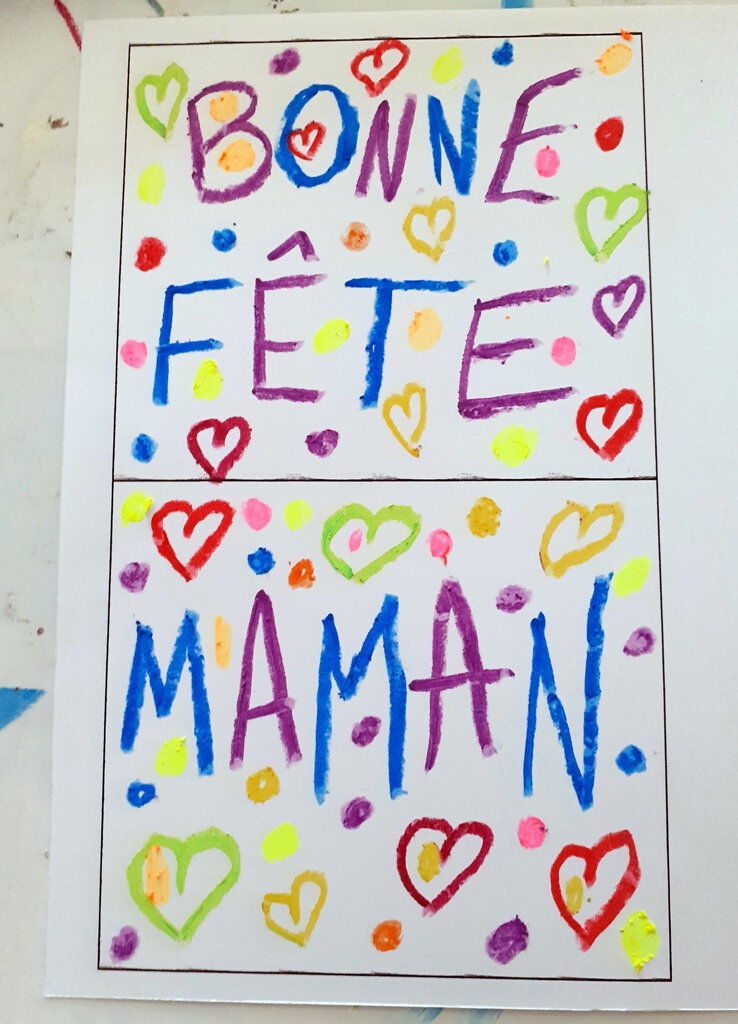 BONNE
FÊTE
MAMAN